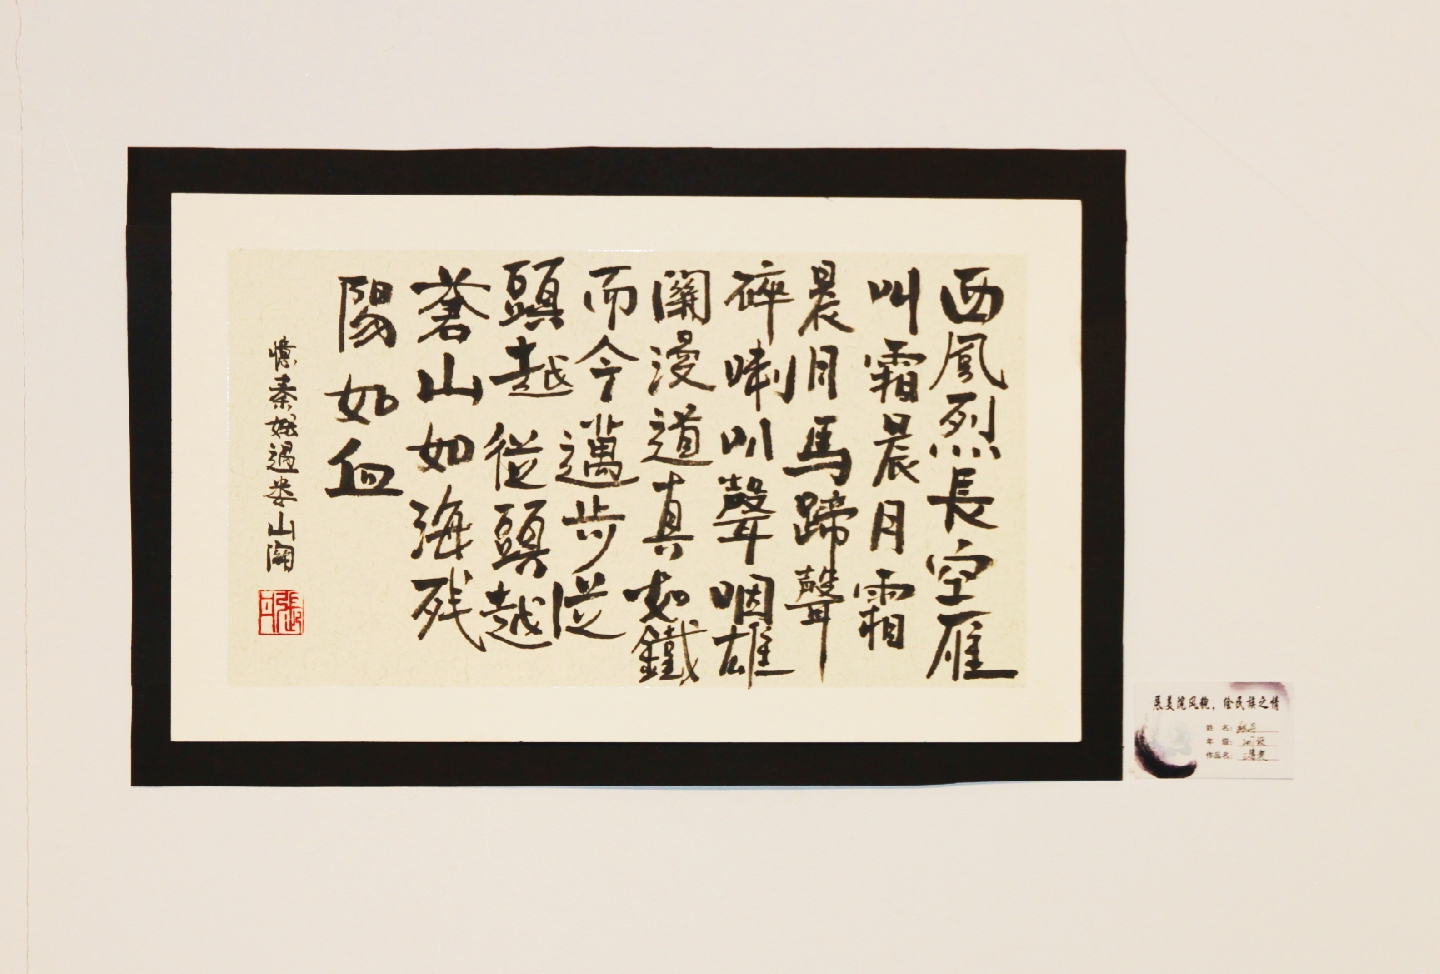 西風烈長空雁
叫霜晨月霜
晨月馬蹄聲
碎喇叭聲咽雄
關漫道真如鐵
而今邁步從
頭越從頭越
蒼山如海残
陽如血
憶秦娥過娄山關
展美院风貌，绘民族之情
姓 名:
年 级:
作品名: